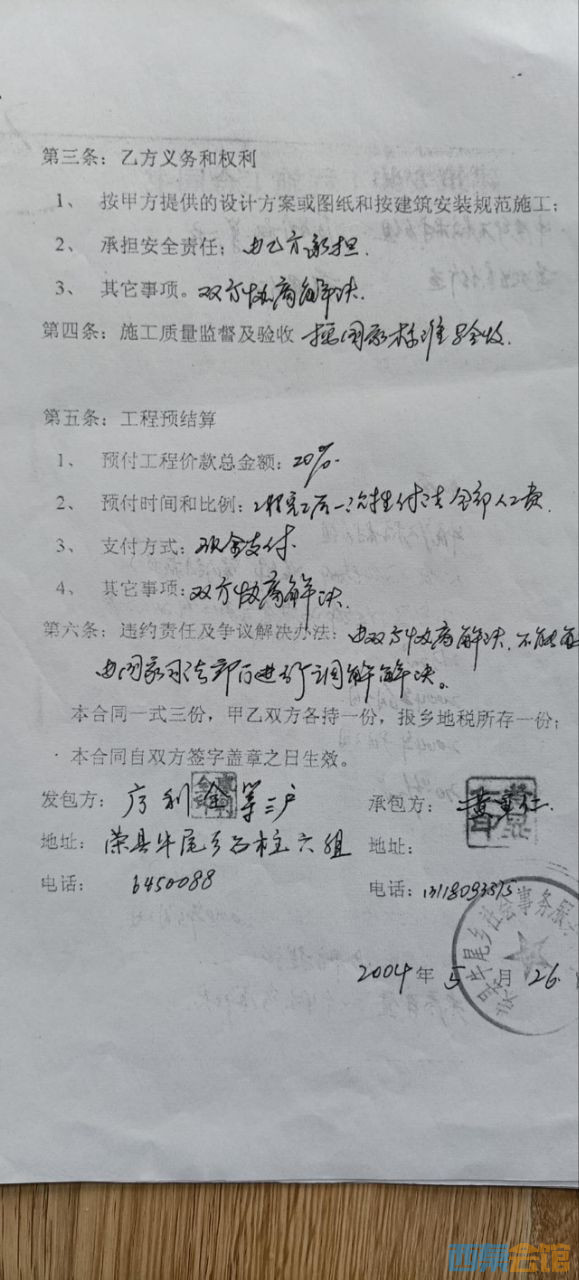 第三条：乙方义务和权利
1、 按甲方提供的设计方案或图纸和按建筑安装规范施工；
2、 承担安全责任；由乙方承担.
3、 其它事项。双方协商解决.
第四条：施工质量监督及验收 按国家标准验收.
第五条：工程预结算
1、 预付工程价款总金额：20%.
2、 预付时间和比例：工程完工后一次性付清全部人工费.
3、 支付方式：现金支付.
4、 其它事项：双方协商解决.
第六条：违约责任及争议解决办法：由双方协商解决.不能
由国家司法部门进行调解解决。
本合同一式三份，甲乙双方各持一份，报乡地税所存一份；
本合同自双方签字盖章之日生效。
发包方： 利金等三户
承包方：黄
地址：荣县牛尾乡石柱六组 地址：
电话：6450088
电话：
牛尾乡社会事务服
2004年5月26
西京会馆